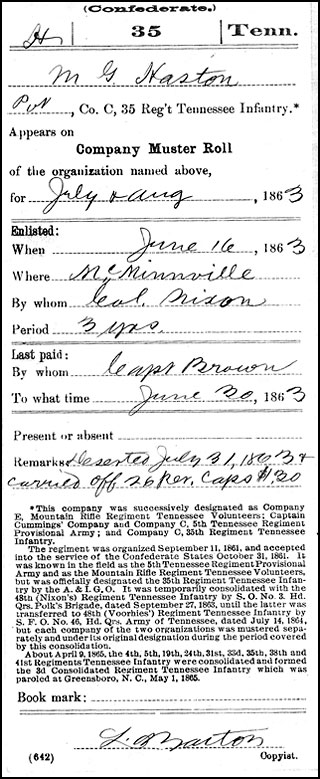 (Confederate.)
H 35 Tenn.
M G Haston
Pvt, Co. C, 35 Reg't Tennessee Infantry.*
Appears on
Company Muster Roll
of the organization named above,
for July & Aug, 1863
Enlisted:
When June 16, 1863
Where McMinnville
By whom Col. Nixon
Period 3 yrs.
Last paid:
By whom Capt Brown
To what time June 30, 1863
Present or absent
Remarks: Deserted July 31, 1863 &
carried off 26 Caps $.30
*This company was successively designated as Company
E, Mountain Rifle Regiment Tennessee Volunteers; Captain
Cummings' Company and Company C, 5th Tennessee Regiment
Provisional Army; and Company C, 35th Regiment Tennessee
Infantry.
The regiment was organized September 11, 1861, and accepted
into the service of the Confederate States October 31, 1861. It
was known in the field as the 5th Tennessee Regiment Provisional
Army and as the Mountain Rifle Regiment Tennessee Volunteers,
but was officially designated the 35th Regiment Tennessee Infan-
try by the A. & I. G. O. It was temporarily consolidated with the
48th (Nixon's) Regiment Tennessee Infantry by S. O. No. 3, Hd.
Qrs. Polk's Brigade, dated September 27, 1863, until the latter was
transferred to 48th (Voorhies') Regiment Tennessee Infantry by
S. F. O. No. 46, Hd. Qrs. Army of Tennessee, dated July 14, 1864,
but each company of the two organizations was mustered sepa-
rately and under its original designation during the period covered
by this consolidation.
About April 9, 1865, the 4th, 5th, 19th, 24th, 31st, 33d, 35th, 38th and
41st Regiments Tennessee Infantry were consolidated and formed
the 3d Consolidated Regiment Tennessee Infantry which was
paroled at Greensboro, N. C., May 1, 1865.
Book mark:
(642) Copyist.